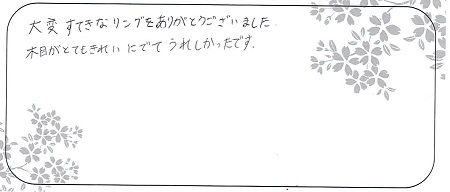 大変 すてきなリングをありがとうございました.
木目がとてもきれいにでて うれしかったです.